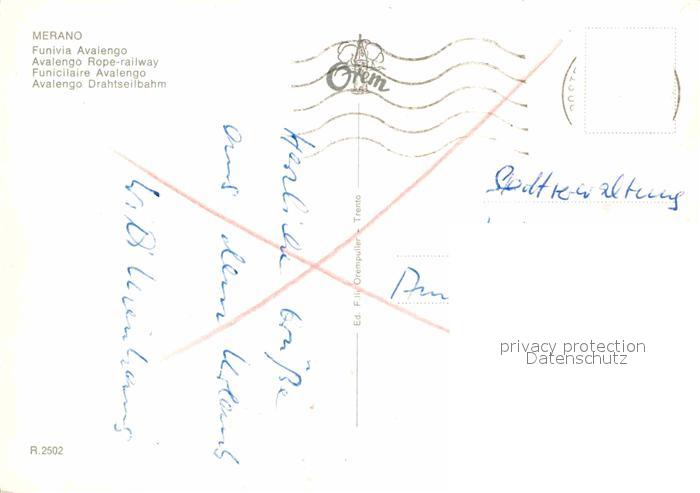 MERANO
Funivia Avalengo
Avalengo Rope-railway
Funicilaire Avalengo
Avalengo Drahtseilbahm
Orem
POSTE
Herzliche Grüße
aus dem Urlaub
Ed. F.lli Orempuller - Trento
Stadtverwaltung
Am
privacy protection
Datenschutz
R.2502